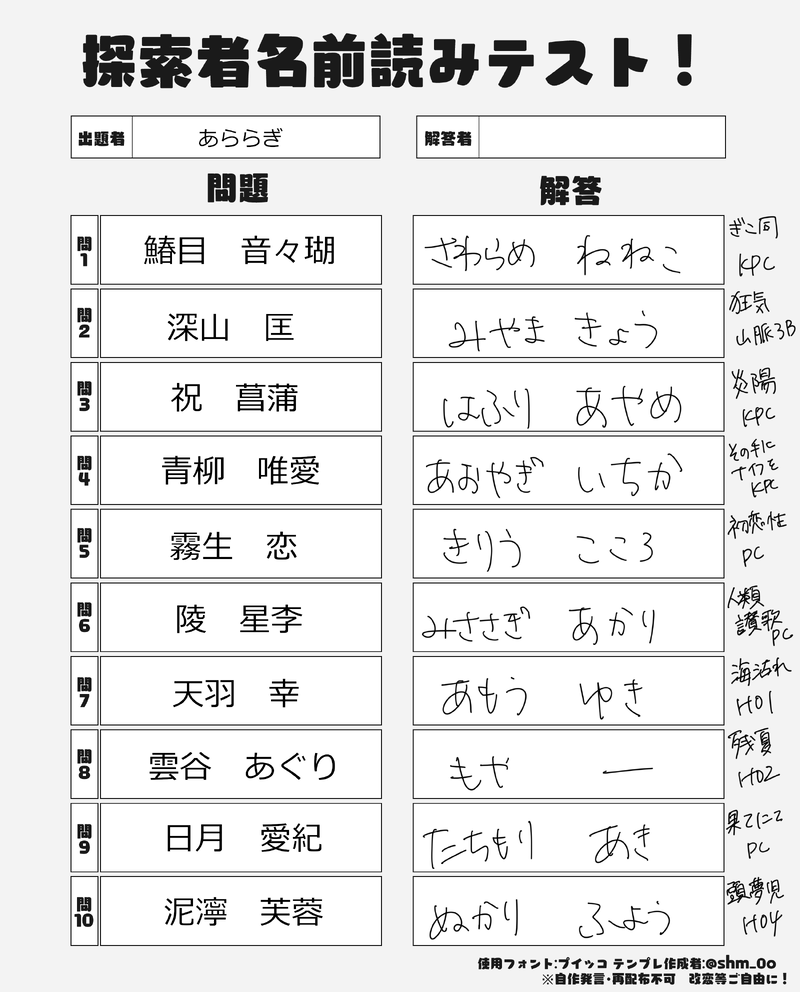 探索者名前読みテスト！
出題者 あららぎ 解答者
問題 解答
問1 鰆目 音々瑚 さわらめ ねねこ ぎこ同 KPC
問2 深山 匡 みやま きょう 狂気山脈3B
問3 祝 菖蒲 はふり あやめ 炎陽 KPC
問4 青柳 唯愛 あおやぎ いちか その手にナイフを KPC
問5 霧生 恋 きりう こころ 初恋性 PC
問6 陵 星李 みささぎ あかり 人類讃歌 PC
問7 天羽 幸 あもう ゆき 海沽れ HO1
問8 雲谷 あぐり もや ー 残夏 HO2
問9 日月 愛紀 たちもり あき 果てにて PC
問10 泥濘 芙蓉 ぬかり ふよう 頭夢児 HO4
使用フォント:プイッコ テンプレ作成者:@shm_0o
※自作発言・再配布不可 改恋等ご自由に！